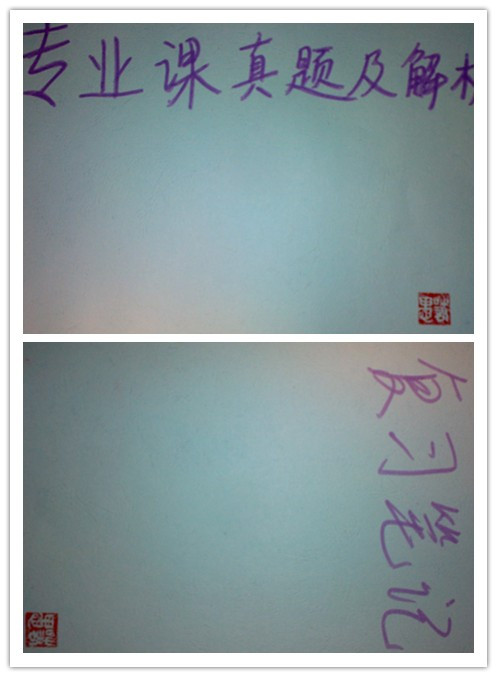 专业课真题及解析
复习笔记